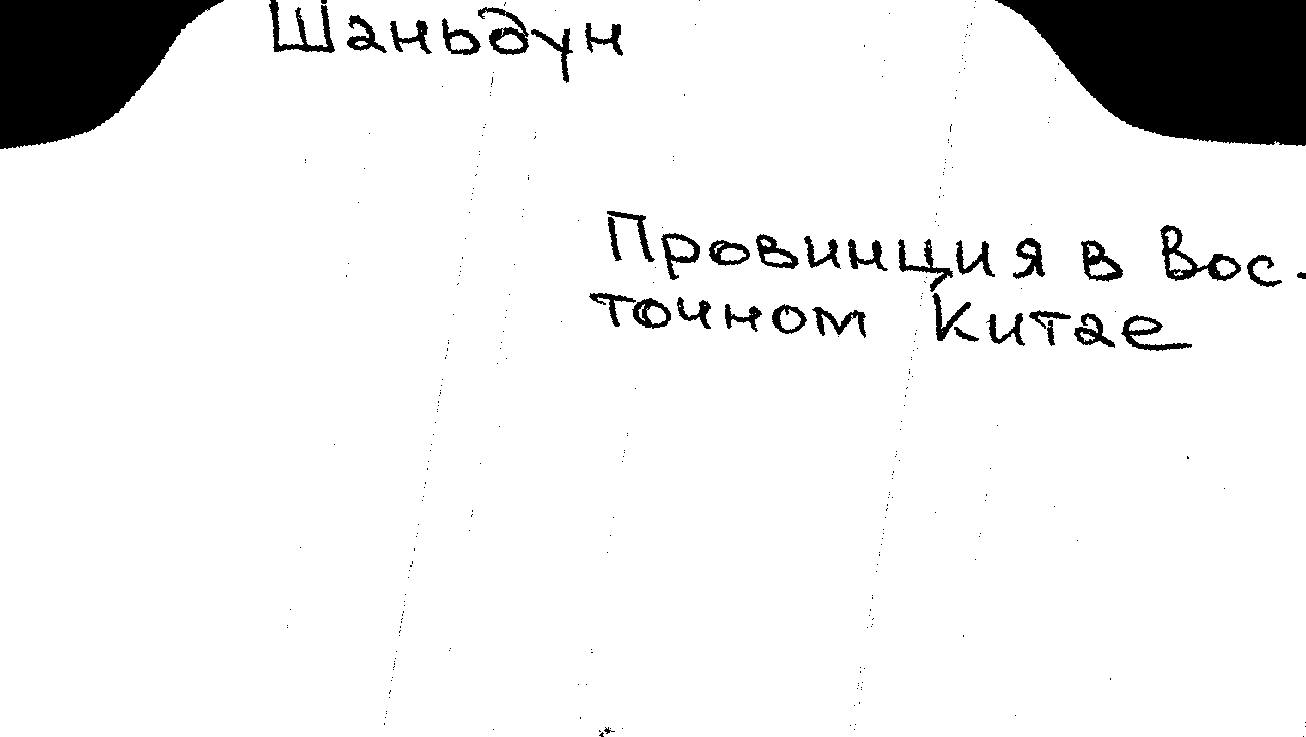 Шаньдун
Провинция в Вос-
точном Китае